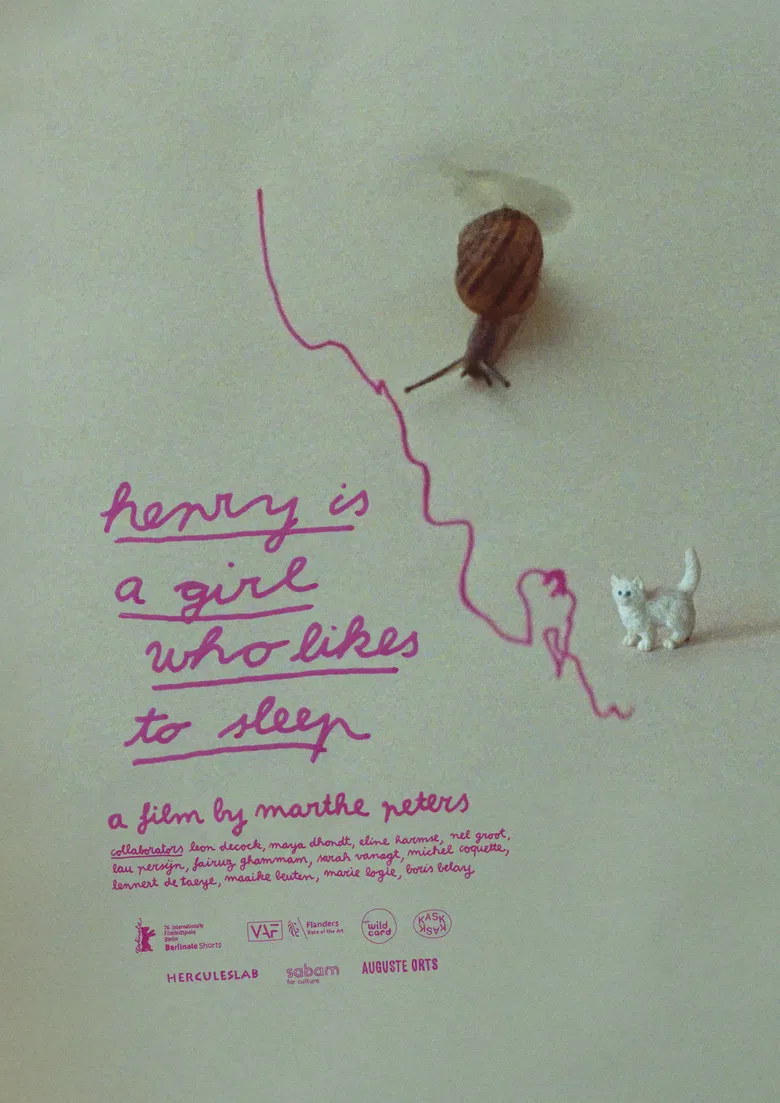 henry is
a girl
who likes
to sleep
a film by marthe peters
collaborators leon decock, maya dhondt, eline harmse, nel groot,
lau persijn, fairuz ghammam, sarah vanagt, michel coquette,
lennert de taeye, maaike beuten, marie logie, boris belay
74 Internationale
Filmfestspiele
Berlin
Berlinale Shorts
VAF
Flanders
State of the Art
wild
card
KASK
KASK
HERCULESLAB
sabam
for culture
AUGUSTE ORTS